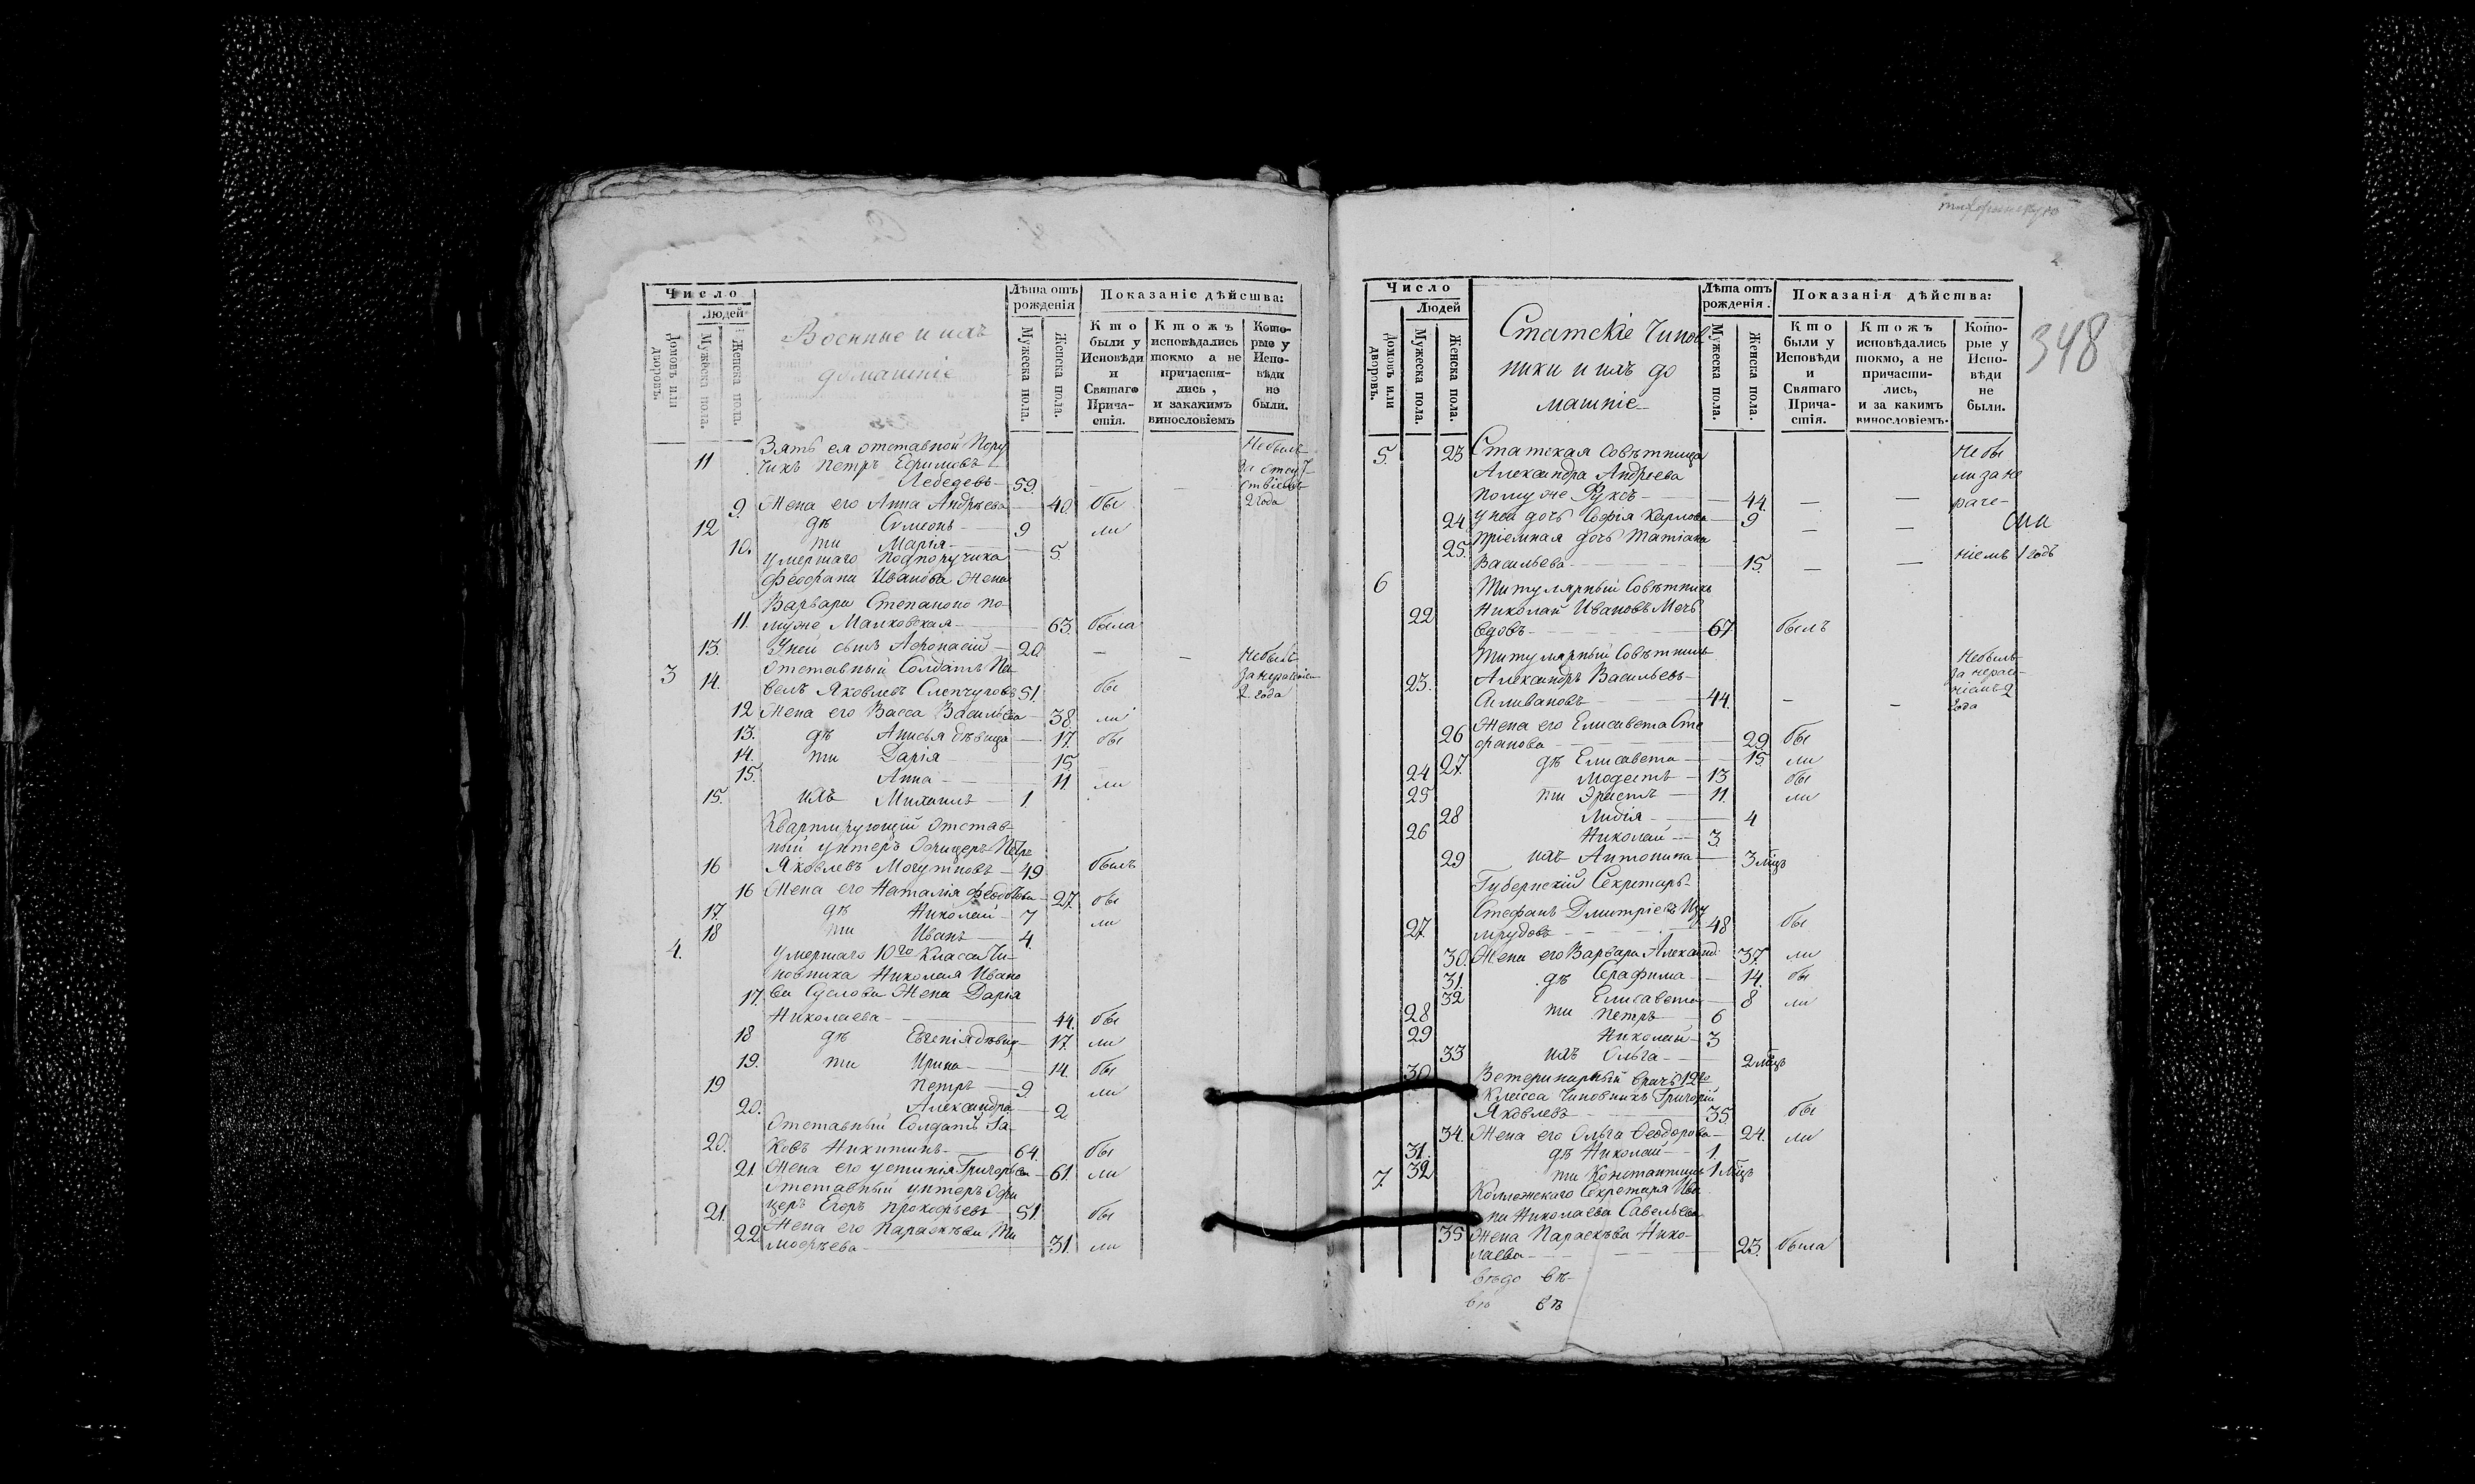 Число
Людей
Домовъ или дворовъ.
Мужеска пола.
Женска пола.
Военные и ихъ
домашніе
Лѣта отъ рожденія
Мужеска пола.
Женска пола.
Показаніе дѣйства:
Кто были у Исповѣди и Святаго Причастія.
Ктожъ исповѣдались токмо а не причастились, и закакимъ винословіемъ
Которые у Исповѣди не были.
Зять ея отставной Пору Небылъ
11 чикъ Петръ Ефимовъ за отсут
Лебедевъ 59. — — ствіемъ
9. Жена его Анна Андреева 40. бы 2 года
12 дѣ Симеонъ 9 ли
10. ти Марія 5.
Умершаго Подпоручика
Феофана Иванова Жена
Варвара Степанова по
11. мужѣ Малковская 63. была
13. Уней сынъ Афонасій 20 — — Небылъ
3 Отставный Солдатъ Па за нераченіем
14. велъ Яковлевъ Слепчуговъ 51. бы 2 года
12 Жена его Васса Васильева 38. ли
13. дѣ Анисья дѣвица 17. бы
14. ти Дарія 15
15. Анна 11. ли
15. ихъ Михаилъ 1.
Квартирующій Отстав
ный унтеръ Офицеръ Петръ
16 Яковлевъ Могутновъ 49 былъ
16 Жена его Наталія Феодотова 27. бы
17. дѣ Николай 7 ли
18 ти Иванъ 4.
4. Умершаго 10го Класса Чи
новника Николая Ивано
17. ва Суслова Жена Дарія
Николаева 44. бы
18 дѣ Евгенія дѣвиц 17. ли
19. ти Ирина 14. бы
19 Петръ 9. ли
20. Александра 2
Отставный Солдатъ Іа
20. ковъ Никитинъ 64. бы
21 Жена его Устинія Григорьева 61. ли
Отставный унтеръ Офи
21. церъ Егоръ Прокофьевъ 51. бы
22. Жена его Параскѣва Ти
мофѣева 31. ли
348
Число
Людей
Домовъ или дворовъ.
Мужеска пола.
Женска пола.
Статскіе Чинов
ники и ихъ до
машніе
Лѣта отъ рожденія.
Мужеска пола.
Женска пола.
Показанія дѣйства:
Кто были у Исповѣди и Святаго Причастія.
Ктожъ исповѣдались токмо, а не причастились, и за какимъ винословіемъ.
Которые у Исповѣди не были.
5. 23 Статская Совѣтница Небы
Александра Андреева ли за не
помужѣ Руксъ 44. — — раче-
24 Уней дочь Софія Карлова 9 — —
25. Пріемная дочь Татіана
Васильева 15. — — ніемъ 1 годъ
6 Титулярный Совѣтникъ
22 Николай Ивановъ Меч
вдовъ 67 былъ
Титулярный Совѣтникъ Небылъ
23. Александръ Васильевъ за нераче
Селивановъ 44. — — ніемъ 2 года
26 Жена его Елисавета Сте
фанова 29 бы
27. дѣ Елисавета 15. ли
24 Модестъ 13 бы
25 ти Эрастъ 11. ли
28 Лидія 4
26 Николай 3.
29 ихъ Антонина 3 мцъ
Губернскій Секретарь
Стефанъ Дмитріевъ Изу
27. мрудовъ 48 бы
30. Жена его Варвара Александ 37. ли
31. дѣ Серафима 14. бы
32 Елисавета 8 ли
28 ти Петръ 6
29 Николай 3
33 ихъ Ольга 2 мцъ
30 Ветеринарный врачъ 12го
Класса Чиновникъ Григорій
Яковлевъ 35. бы
34. Жена его Ольга Феодорова 24. ли
31. дѣ Николай 1.
7. 32 ти Константинъ 1 мцъ
Коллежскаго Секретаря Ива
на Николаева Савельева
35 Жена Параскѣва Нико
лаева 23. была